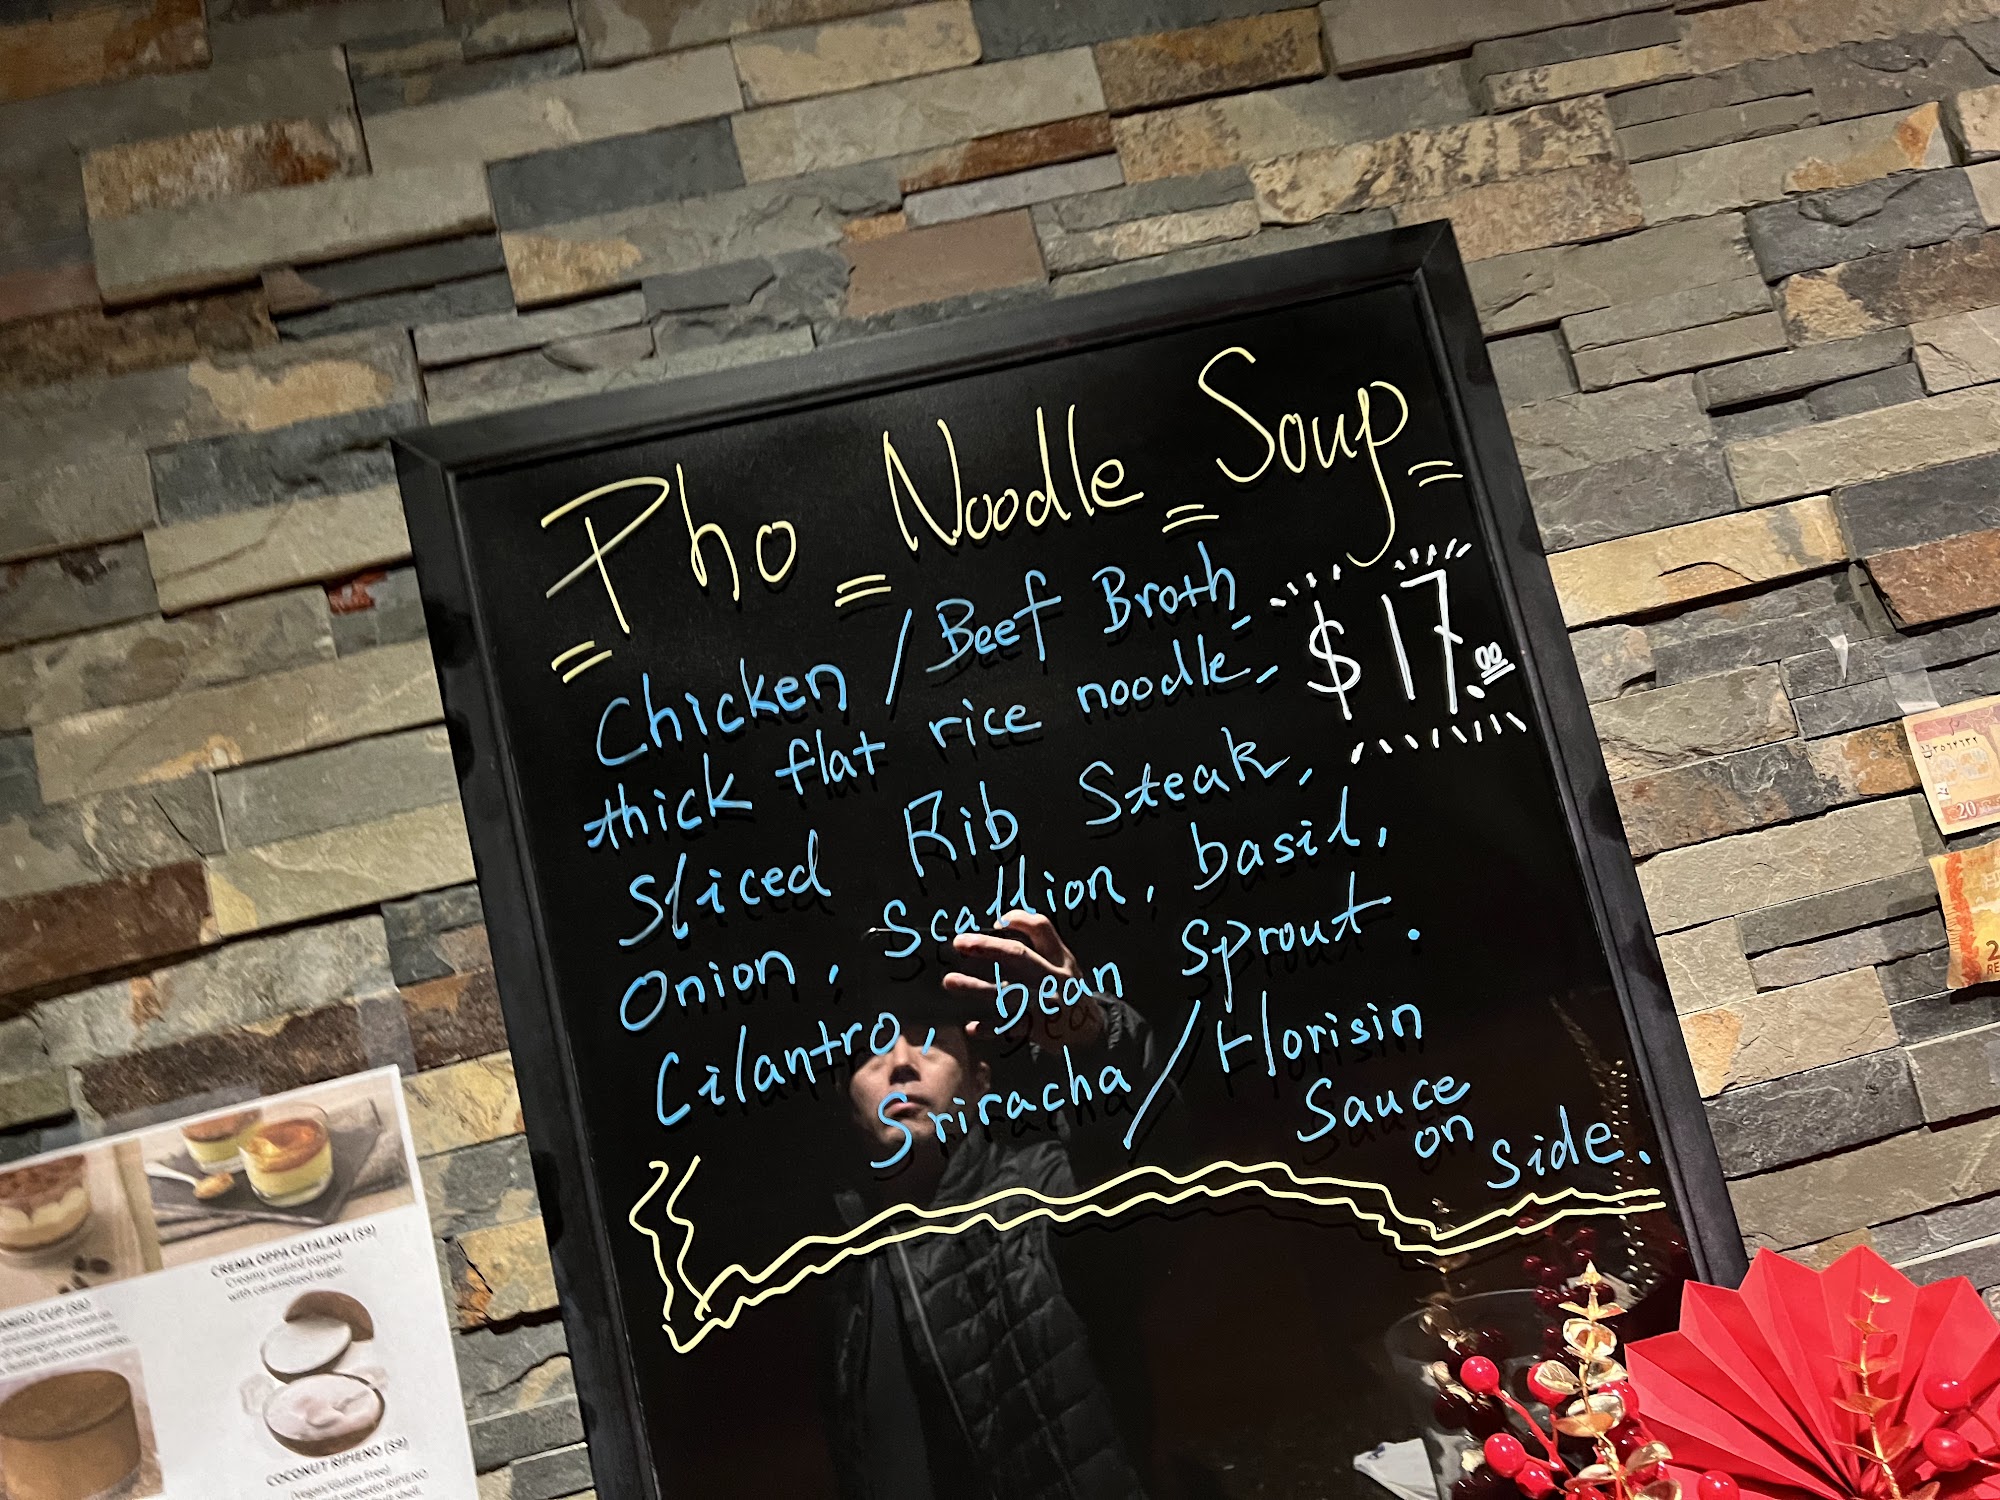 Pho Noodle Soup
Chicken / Beef Broth
thick flat rice noodle,
$17.00
Sliced Rib Steak,
Onion, Scallion, basil,
Cilantro, bean Sprout.
Sriracha / Horisin
Sauce
on
Side.
CREMA OPPA CATALANA ($9)
Creamy custard topped
with caramelized sugar.
CUP ($8)
COCONUT RIPIENO ($9)
(Vegan/Gluten Free)
sorbetto RIPIENO
shell.
20
2
RE